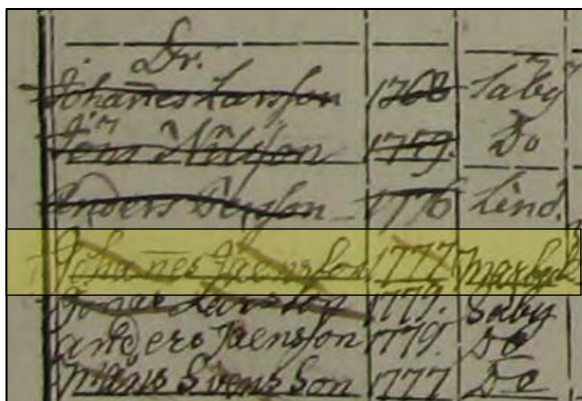 Dr.
Johanes Larsson 1768 Säby
Jöns Nilsson 1759. Do
Anders Bengtson 1776 Lind.
Johanes Jaensson 1777
Jonas Larsson 1779. Säby
anders Jaensson 1779. Do
Måns Svensson 1777 Do